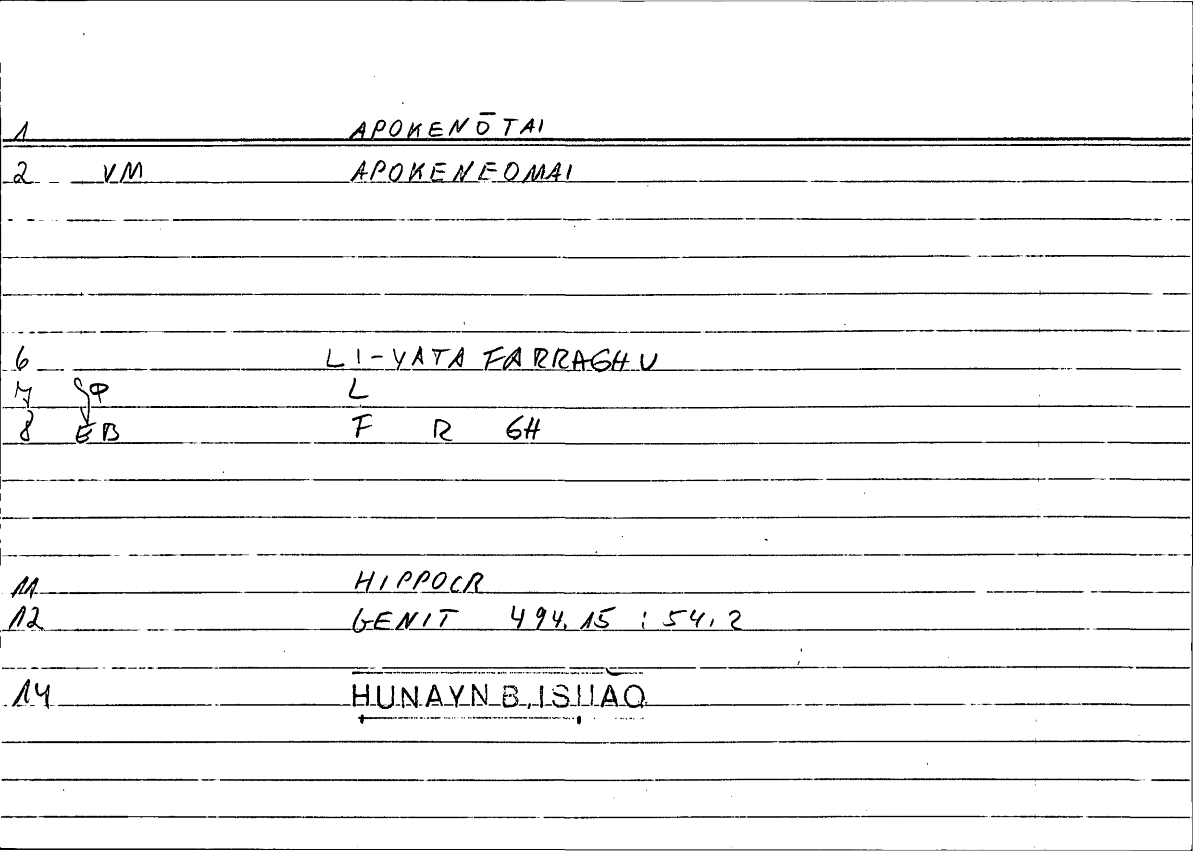 1 APOKENŌTAI
2 VM APOKENEOMAI
6 LI-YATA FARRAGHU
7 L
8 EB F R GH
11 HIPPOCR
12 GENIT 494.15 : 54.2
14 HUNAYN B. ISḤĀQ